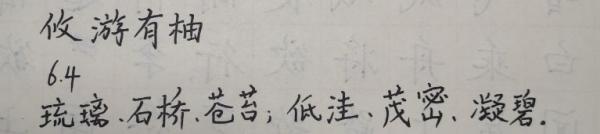 攸游有柚
6.4
琉璃、石桥、苍苔；低洼、茂密、凝碧.